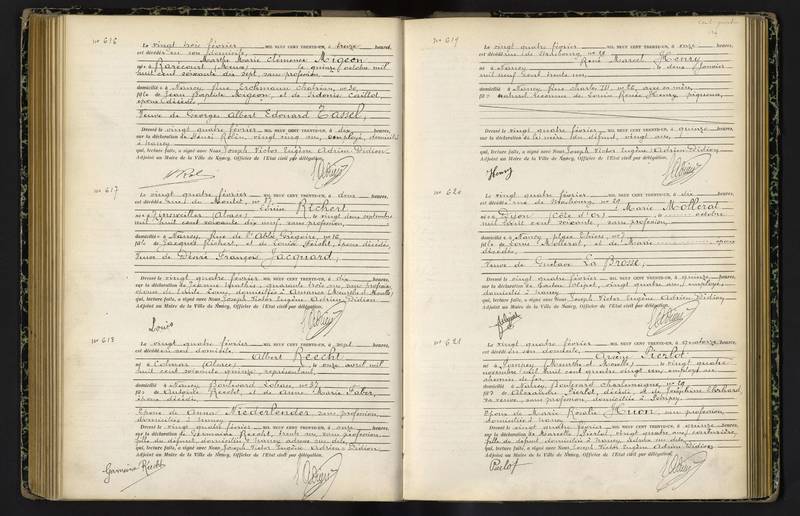 No 616
Le vingt trois février MIL NEUF CENT TRENTE-UN, à treize heures,
est décédée en son domicile,
Marthe Marie Clémence Migeon
née à Rarécourt (Meuse) le quinze octobre mil
huit cent soixante dix sept, sans profession,
domiciliée à Nancy, rue Erckmann Chatrian, no 20,
fille de Jean Baptiste Migeon, et de Sidonie Caillot,
époux décédés,
Veuve de Georges Albert Edouard Tassel;
Dressé le vingt quatre février MIL NEUF CENT TRENTE-UN, à dix heures,
sur la déclaration de Henri vingt cinq ans, employé, domicilié
à Nancy
qui, lecture faite, a signé avec Nous Joseph Victor Eugène Adrien Didion
Adjoint au Maire de la Ville de Nancy, Officier de l'Etat civil par délégation.
No 617
Le vingt quatre février MIL NEUF CENT TRENTE-UN, à deux heures,
est décédée rue du
Richert
(Alsace) le vingt deux septembre
mil huit cent soixante dix neuf, sans profession,
domiciliée à Nancy, Rue de l'Abbé Grégoire, no 16,
fille de Jacques Richert, et de Louise époux décédés
Veuve de Désiré François Jacquard;
Dressé le vingt quatre février MIL NEUF CENT TRENTE-UN, à dix heures,
sur la déclaration de Jeanne quarante trois ans, sans profession
domiciliée à (Meurthe et Moselle)
qui, lecture faite, a signé avec Nous Joseph Victor Eugène Adrien Didion
Adjoint au Maire de la Ville de Nancy, Officier de l'Etat civil par délégation.
Louis
No 618
Le vingt quatre février MIL NEUF CENT TRENTE-UN, à sept heures,
est décédé en son domicile,
Albert Reecht
né à Colmar (Alsace) le onze avril mil
huit cent soixante quinze, représentant,
domicilié à Nancy Boulevard Lobau, no 37
fils de Auguste Reecht, et de Anne Marie Faber,
époux décédés,
Epoux de Anna Niederlender, sans profession,
domiciliée à Nancy
Dressé le vingt quatre février MIL NEUF CENT TRENTE-UN, à onze heures,
sur la déclaration de Germaine Reecht, trente ans, sans profession
fille du défunt, domiciliée à Nancy, même rue
qui, lecture faite, a signé avec Nous Joseph Victor Eugène Adrien Didion
Adjoint au Maire de la Ville de Nancy, Officier de l'Etat civil par délégation.
Germaine Reecht
No 619
Le vingt quatre février MIL NEUF CENT TRENTE-UN, à onze heures,
est décédé rue de Strasbourg no
René Marcel Henry
né à Nancy le deux Janvier
mil neuf cent trente un,
domicilié à Nancy, rue Charles III, no 26, avec sa mère,
fils naturel reconnu de Louise Renée Henry, piqueuse,
Dressé le vingt quatre février MIL NEUF CENT TRENTE-UN, à quinze heures,
sur la déclaration de la mère du défunt, vingt ans,
qui, lecture faite, a signé avec Nous Joseph Victor Eugène Adrien Didion
Adjoint au Maire de la Ville de Nancy, Officier de l'Etat civil par délégation.
Henry
No 620
Le vingt quatre février MIL NEUF CENT TRENTE-UN, à dix heures,
est décédée rue de Strasbourg no
Marie Mollerat
née à Dijon (Côte d'Or) le octobre
mil huit cent soixante, sans profession,
domiciliée à Nancy, place Thiers, no
fille de Mollerat, et de Marie époux
décédés,
Veuve de Gustave La Brosse;
Dressé le vingt quatre février MIL NEUF CENT TRENTE-UN, à quinze heures,
sur la déclaration de vingt quatre ans, employé,
domicilié à Nancy
qui, lecture faite, a signé avec Nous Joseph Victor Eugène Adrien Didion
Adjoint au Maire de la Ville de Nancy, Officier de l'Etat civil par délégation.
No 621
Le vingt quatre février MIL NEUF CENT TRENTE-UN, à quatorze heures,
est décédé en son domicile,
Arsène Pierlot
né à Pompey (Meurthe et Moselle) le vingt quatre
novembre mil huit cent quatre vingt un, employé au
chemin de fer
domicilié à Nancy Boulevard Charlemagne, no 29
fils de Alexandre Pierlot, décédé, et de Joséphine Ehrhard
sa veuve, sans profession, domiciliée à Pompey,
Epoux de Marie Rosalie Huon, sans profession,
domiciliée à Nancy
Dressé le vingt quatre février MIL NEUF CENT TRENTE-UN, à quinze heures,
sur la déclaration de Marcelle Pierlot, vingt quatre ans, couturière,
fille du défunt, domiciliée à Nancy
qui, lecture faite, a signé avec Nous Joseph Victor Eugène Adrien Didion
Adjoint au Maire de la Ville de Nancy, Officier de l'Etat civil par délégation.
Pierlot